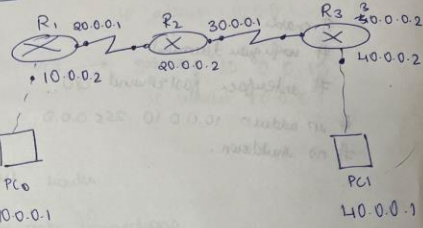 R1 20.0.0.1 R2 30.0.0.1 R3 30.0.0.2
10.0.0.2 20.0.0.2 40.0.0.2
PC0 PC1
0.0.0.1 40.0.0.1